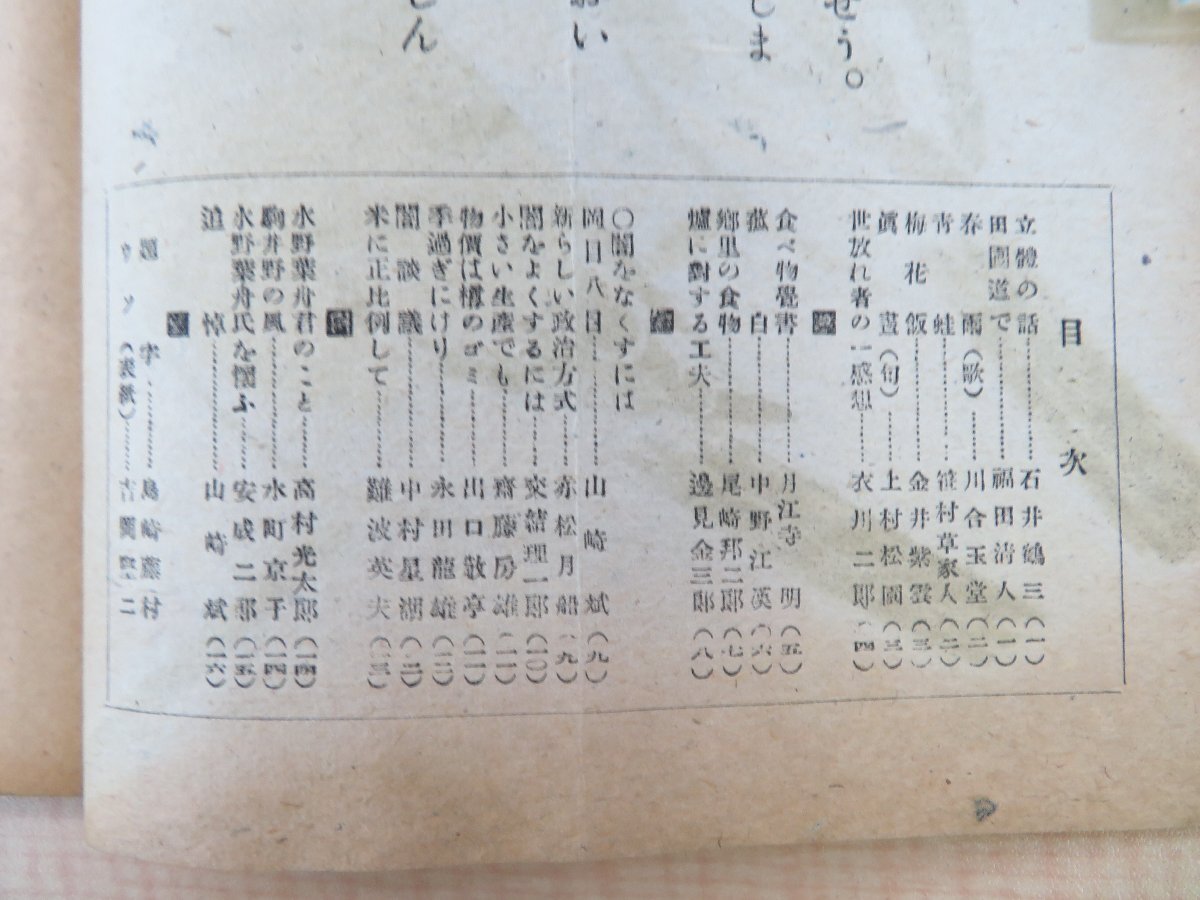 せう。
しま
おい
しん
目次
立體の話………石井鶴三(一)
田園道で………福田清人(一)
春雨(歌)………川合玉堂(二)
青蛙………笹村草家人(二)
梅花飯………金井紫雲(三)
眞晝(句)………上村松園(三)
世放れ者の一感想………衣川二郎(四)
食べ物覺書………月江寺明(五)
菰白………中野江漢(六)
鄕里の食物………尾崎邦二郎(七)
爐に對する工夫………邊見金三郎(八)
〇闇をなくすには
岡目八目………山崎斌(九)
新らしい政治方式………赤松月船(九)
闇をよくするには………安諸理一郎(一〇)
小さい生産でも………齋藤房雄(一一)
物價は樽のゴミ………出口敢亭(一一)
季過ぎにけり………永田龍雄(一二)
闇談議………中村星湖(一二)
米に正比例して………難波英夫(一三)
水野葉舟君のこと………高村光太郎(一四)
駒井野の風………水町京子(一四)
水野葉舟氏を懷ふ………安成二郎(一五)
追悼………山崎斌(一六)
題字………島崎藤村
ウソ(表紙)………吉岡堅二